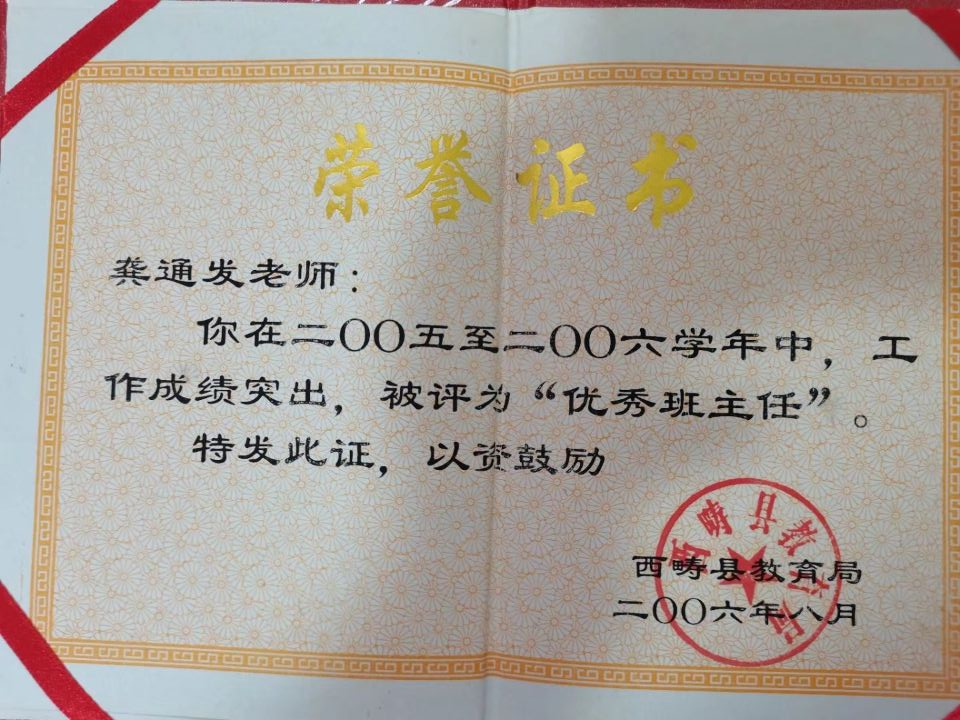 荣誉证书
龚通发老师：
你在二〇〇五至二〇〇六学年中，工
作成绩突出，被评为“优秀班主任”。
特发此证，以资鼓励
西畴县教育局
西畴县教育局
二〇〇六年八月